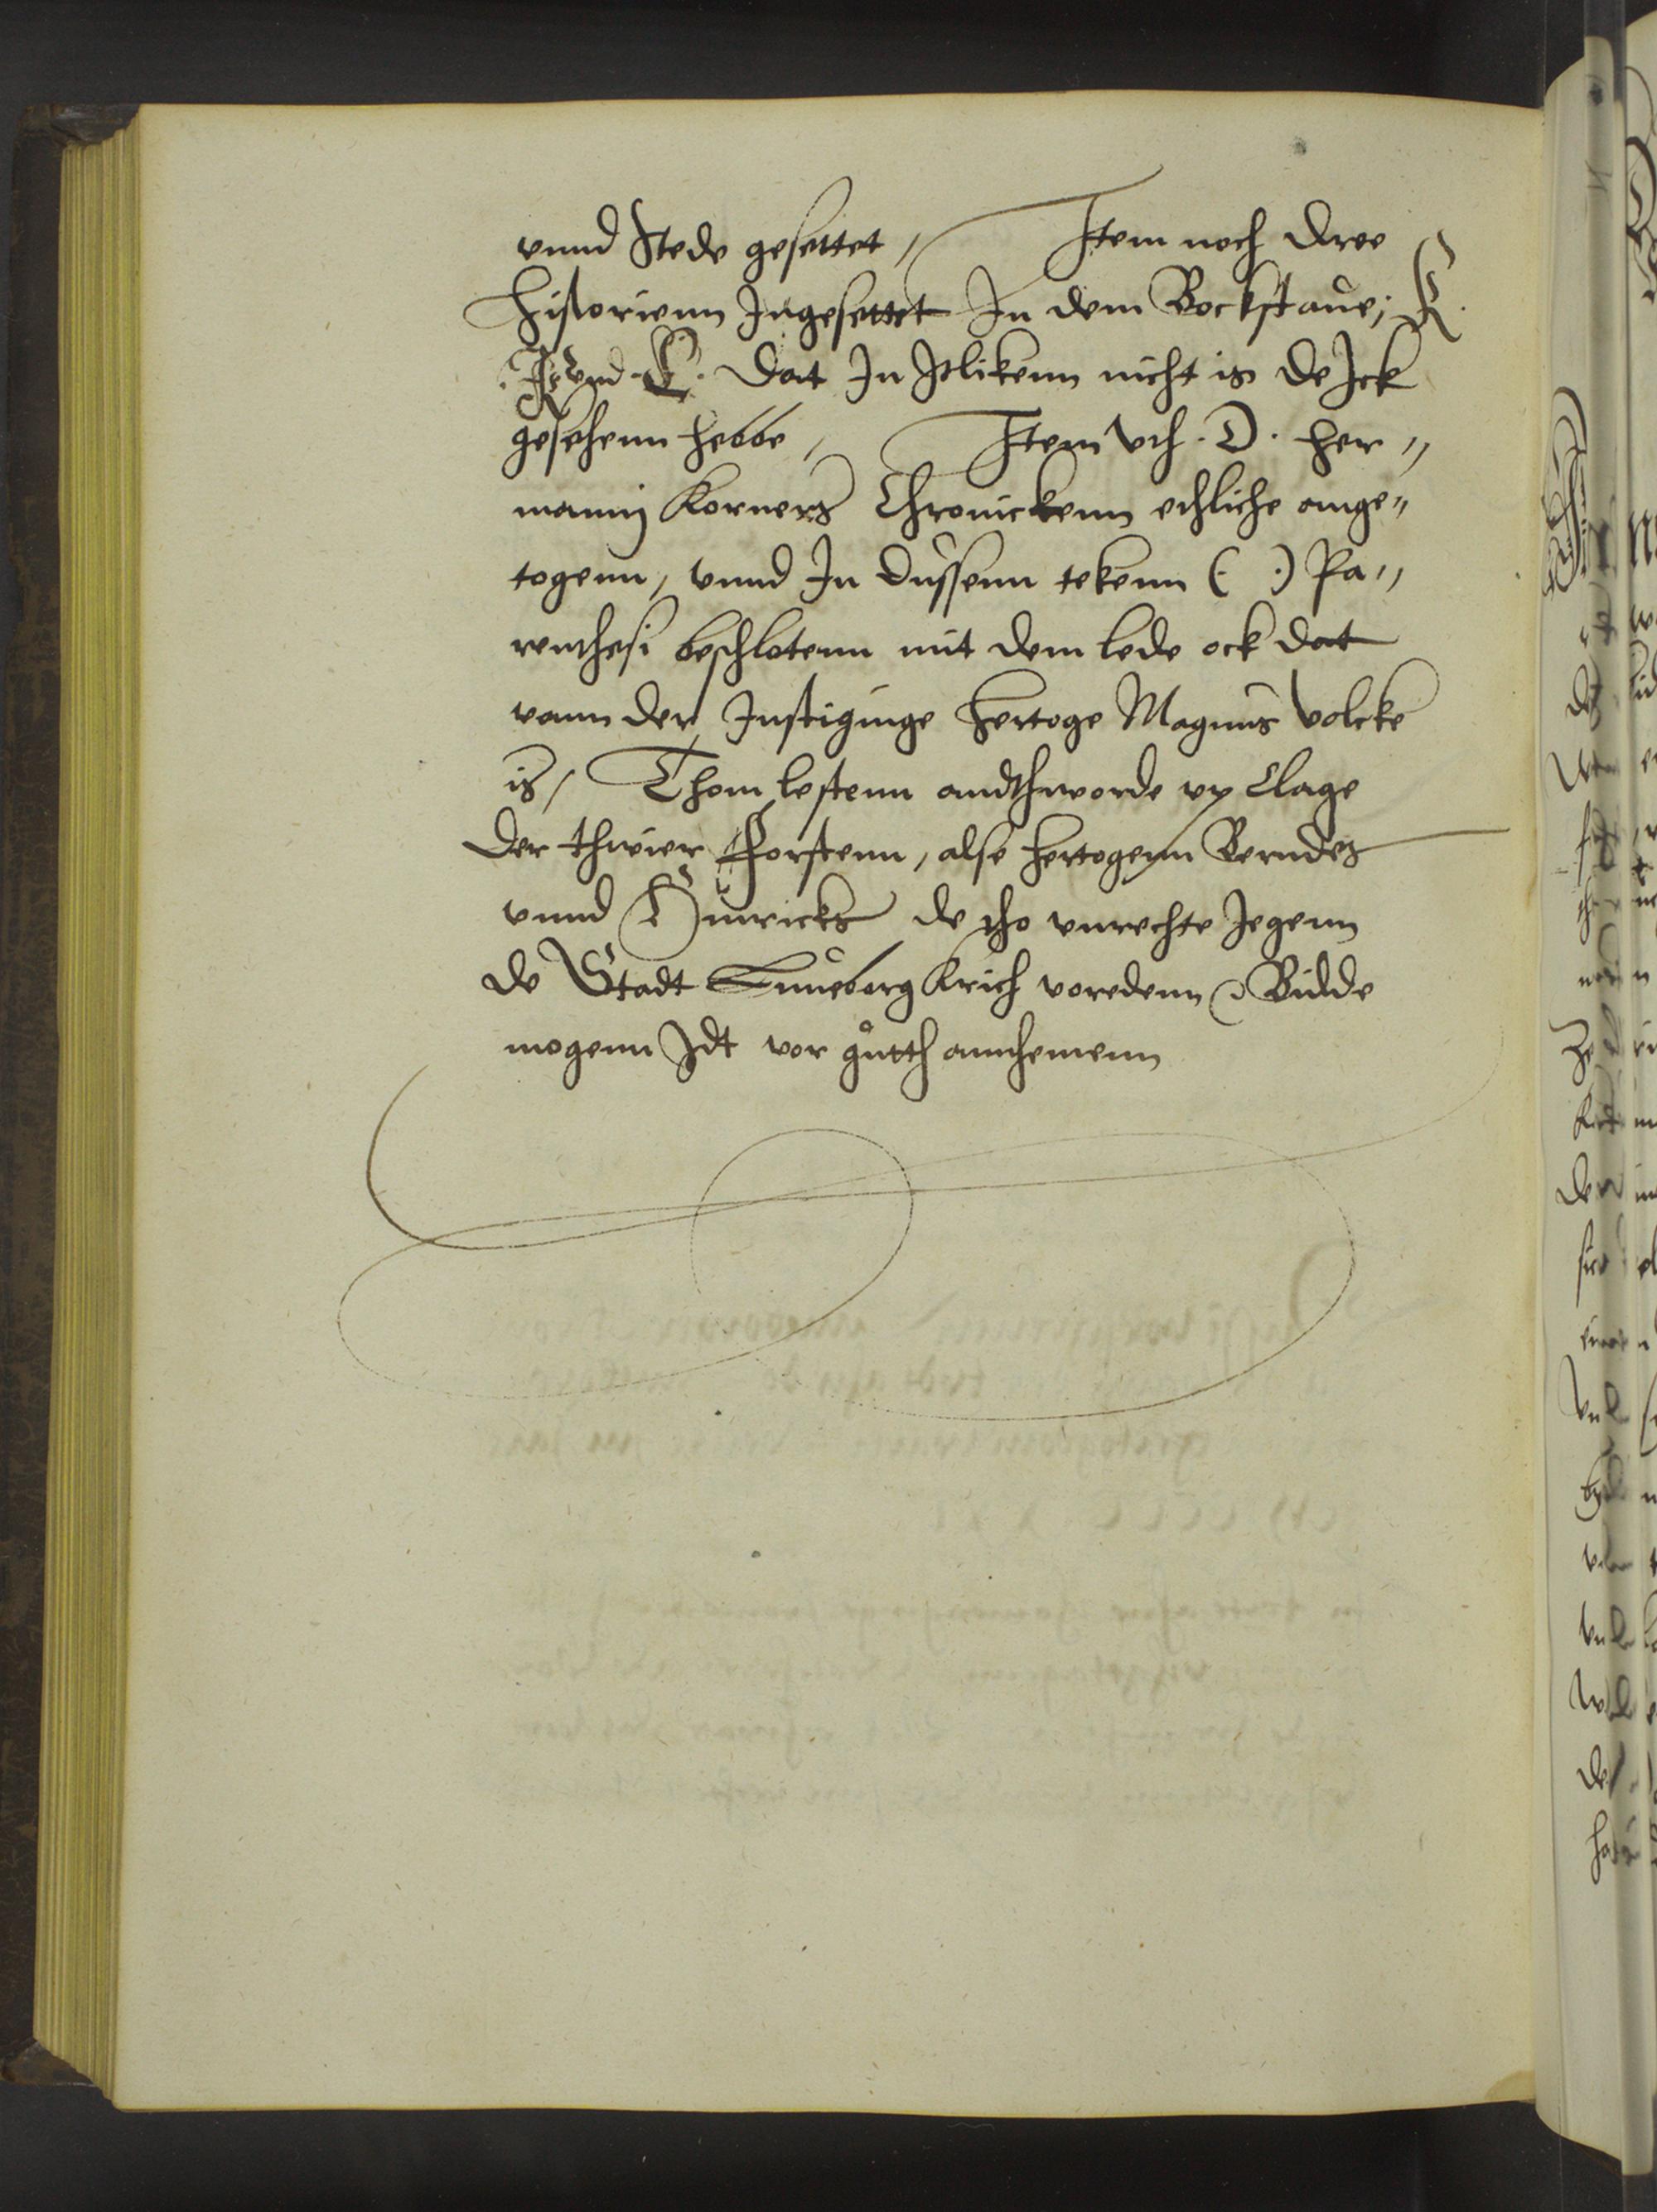 vnnd stede gesettet, Item noch dree
historienn Ingesettet In dem Bockstaue; K.
vnd dat In Itlikenn nicht is de Ick
gesehenn hebbe, Item vth .D. Her„
mannij Korners Chronickenn ethliche ange„
togenn, vnnd In dussenn tekenn (·) Pa„
renthesi beschlotenn mit dem lede ock dat
vann der Instiginge hertoge Magnus volcke
is, Thom lestenn andthworde vp Clage
der thwier Forstenn, alse hertogenn Berndes
vnnd Hinricks de tho vnrechte Jegenn
de Stadt Luneborg Krich voredenn, Bidde
mogenn Idt vor gutth annhemenn